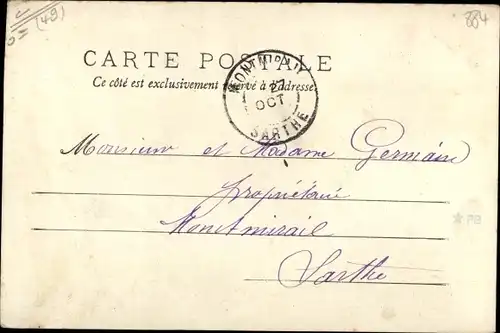 (49)
884
CARTE POSTALE
Ce côté est exclusivement réservé à l'adresse
MONTMIRAIL
27
OCT
SARTHE
Monsieur et Madame Germain
propriétaire
Montmirail
Sarthe